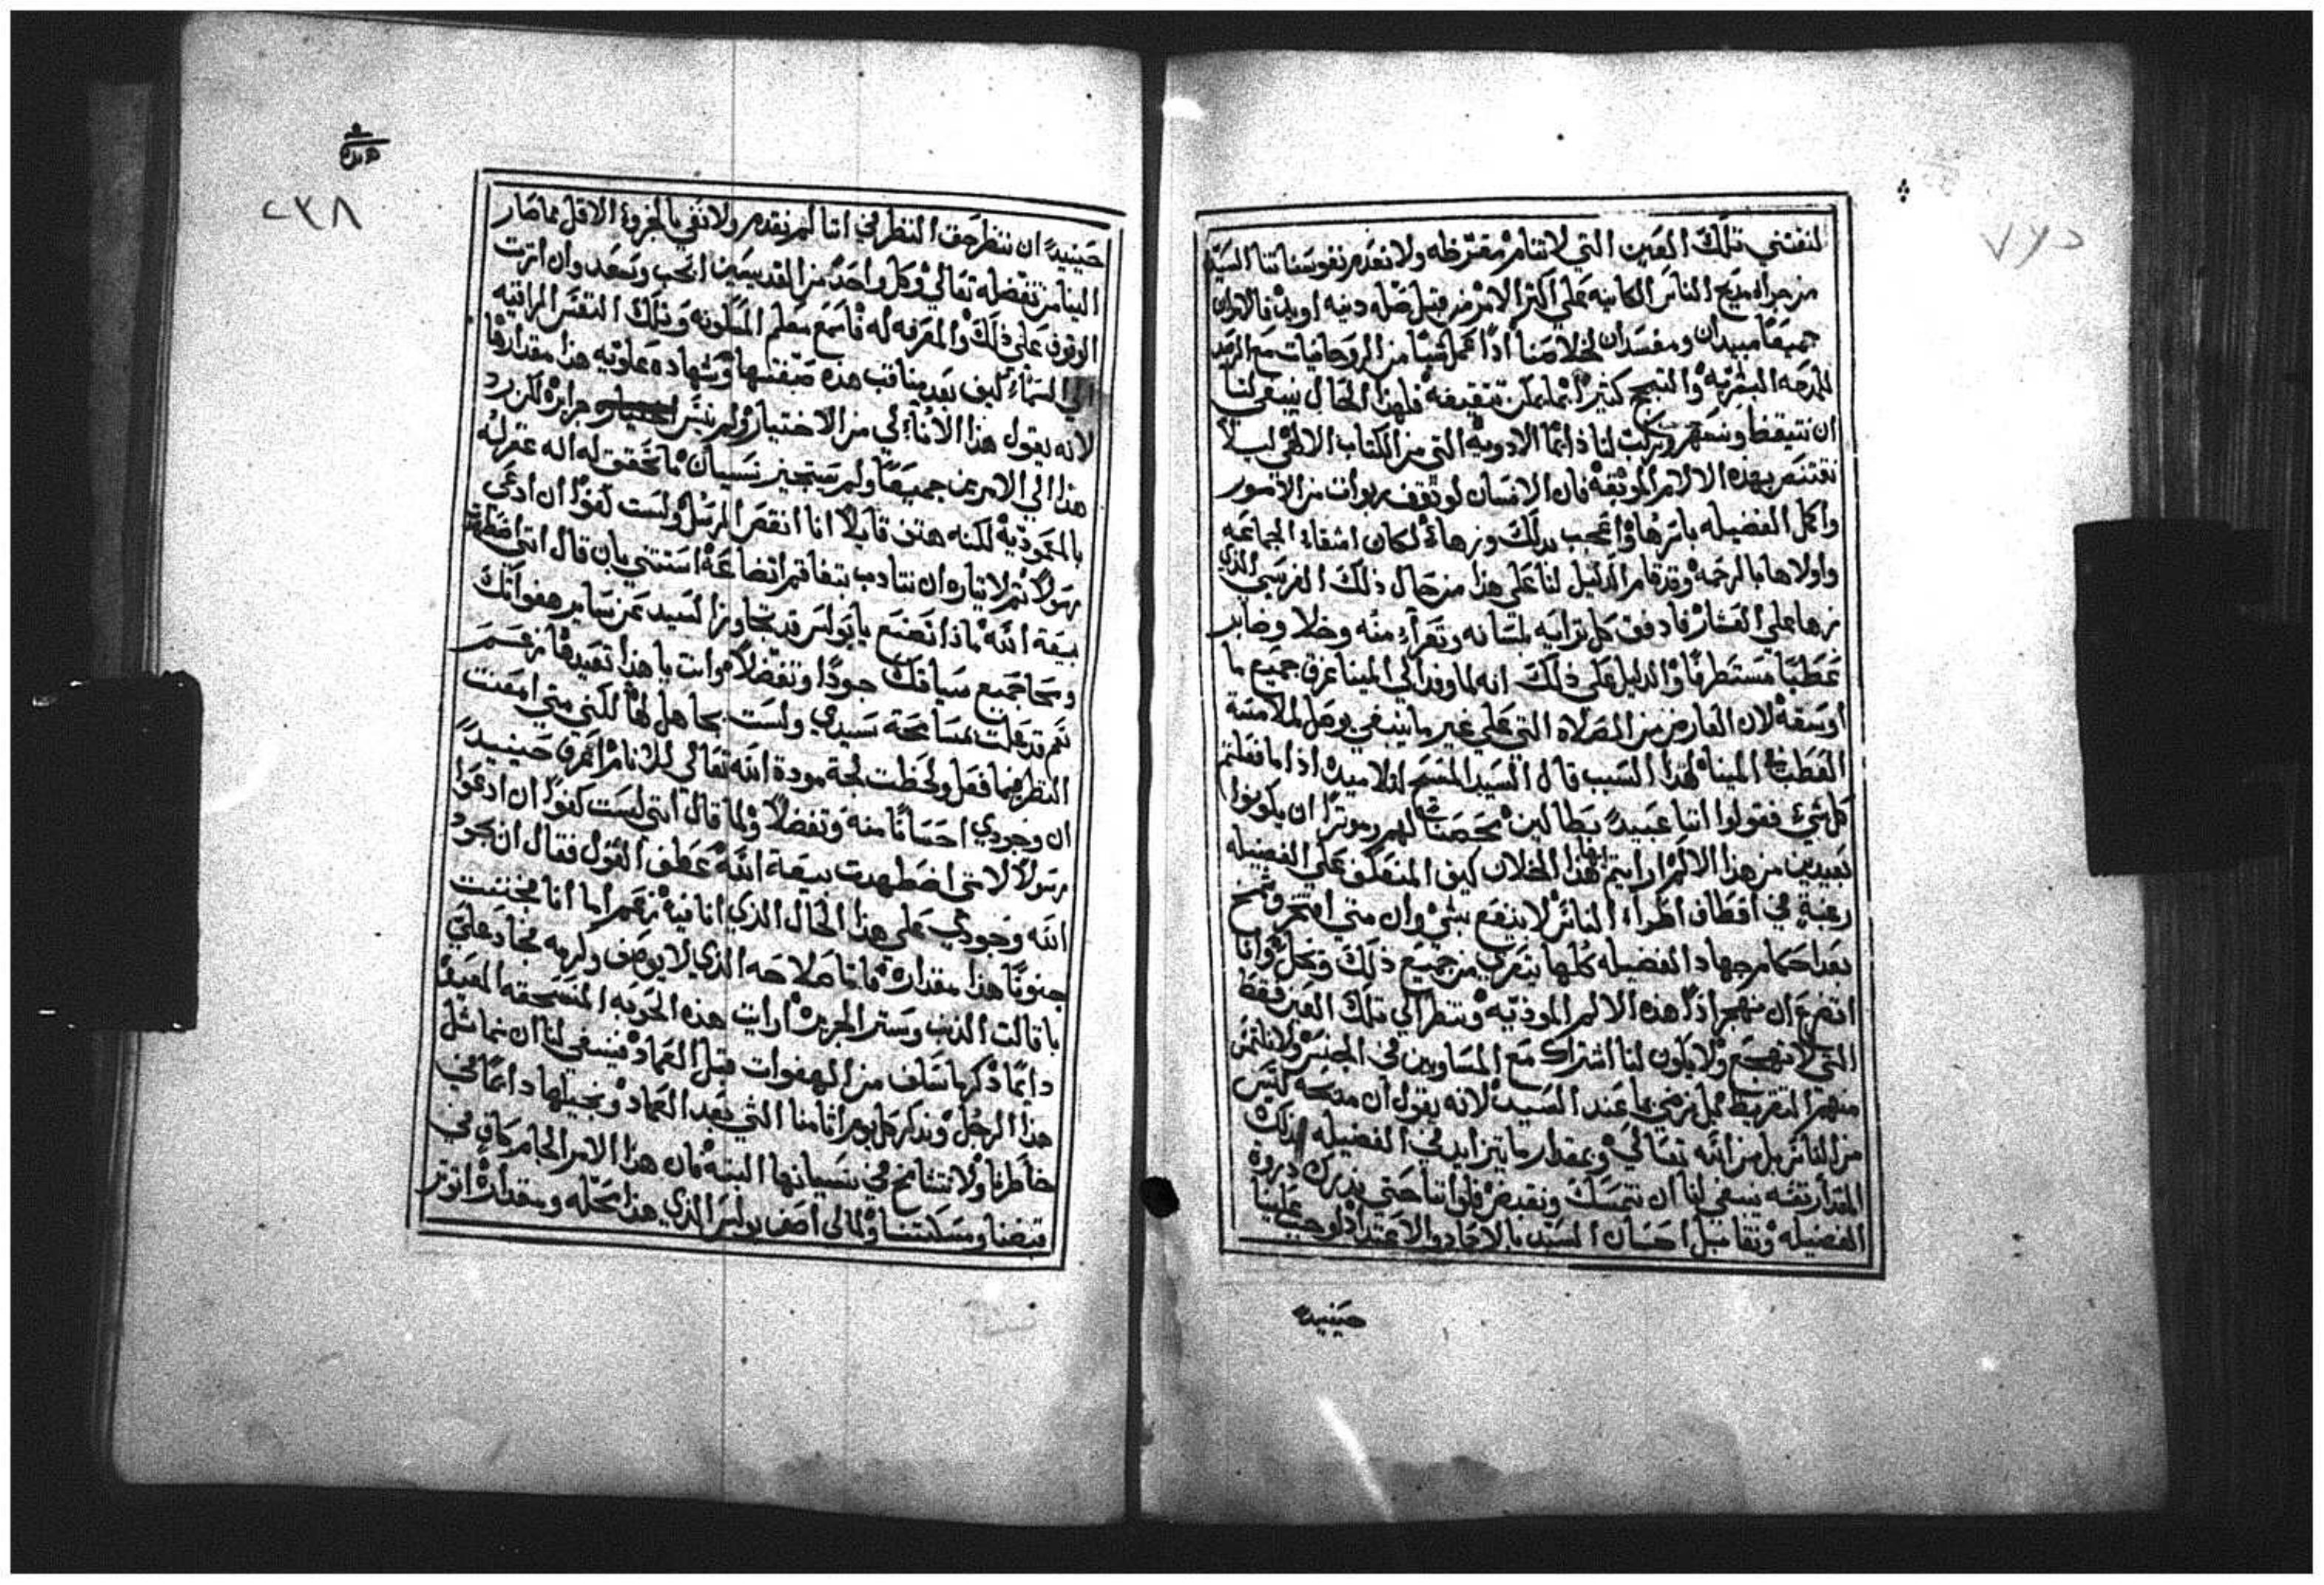 لنقتني تلك العين التي لا تنام مقترظه ولا نعدم نفوسنا ثنا السيد
من جراء مديح الناس الكاينه علي اكثر الامر من قبل صله دينه او بد فالامران
جميعًا مبيدان ومفسدان لخلاصنا اذا عمل شيًا من الروحانيات مع الرصد
للمدحه البشريه والتبجح كثيرًا بما يمكن تنقيصه فلهذا الحال ينبغي لنا
ان نتيقظ ونسهر ونرتب لنا دائمًا الادويه التي من الكتاب الالهي ليلا
نقتنص بهذه الالام الموثقه فان الانسان لو توقف ربوات من الامور
واكمل الفضيله باسرها واعجب بذلك وزها لكان اشقا الجماعه
واولاها بالرحمه وقد قام الدليل لنا علي هذا من حال ذلك الفريسي الذي
زها علي العشار فادفق كل ثراية بلسانه وتعرا منه وخلا وصار
عطبًا مستطرفًا والدليل علي ذلك انه لما وفد الي المينا غرق جميع ما
اوسقه لان العارض من الصلاه التي علي غير ما ينبغي يوصل لملامته
العطب في الميناه لهذا السبب قال السيد المسيح لتلاميذه اذا ما فعلتم
كل شي فقولوا اننا عبيد بطالين محصنًا لهم وموثرًا ان يكونوا
بعيدين من هذا الالم ارايتم ايها هذا الخلان كيف المنعكف علي الفضيله
رغبة في اقتطاف اطراء الناس لا ينتفع بشي وان متي افتخر وشمخ
بعد احكام جهاد الفضيله كلها يتعري من جميع ذلك ويخل وانا
اتضرع ان نهجر اذًا هذه الالام الموذيه وننظر الي تلك العين فقط
التي لا تهجع ولا يكون لنا اشتراك مع المساويين في الجنس ولا نلتمس
منهم التقريظ بل نرضي بما عند السيد لانه يقول ان مدحه ليس
من الناس بل من الله تعالي وبمقدار ما يتزايد في الفضيله بذلك
المقدار نفسه ينبغي لنا ان نتمسك ونقبض ذواتنا حتي ندرك ذروة
الفضيله ونقابل احسان السيد بالاجاد والاعتداد لوجب علينا
حينيذٍ
حينيذًا ان ننظر حق النظر في اننا لم نقدم ولا نفي بالجزو الاقل مما صار
الينا من تفضله تعالي وكل واحد من القديسين احب وسعد وان اثرت
الوقوف علي ذلك والمعرفه له فاسمع معلم المسكونه وتلك النفس المراقيه
الي السماء كيف بعد مناقب هذه صفتها وشهاده علويه هذا مقدارها
لانه يقول هذا الاناء لي من الاختيار ولم ينس جرايره لكن رد
هذا الي الامرين جميعًا ولم يستجيز نسيان ما تحقق له اله غفر له
بالمعموديه لكنه هتف قايلا انا انقص الرسل ولست كفوًا ان ادعي
رسولا ثم لايثاره ان نتادب بتفاقم اتضاعه استثني بان قال انني اضطهدت
بيعة الله ماذا تصنع يا بولس قد تجاوز السيد عن ساير هفواتك
ومحا جميع سياتك جودًا وتفضلا وانت يا هذا تعيدها نعم
نعم قد علمت مسامحة سيدي ولست بجاهل لها لكنني متي امعنت
النظر فيما فعل ولحظت لجة مودة الله تعالي للناس اعرف حينيذٍ
ان وجودي احسانًا منه وتفضلا ولما قال انني لست كفوًا ان ادعوا
رسولا لانني اضطهدت بيعة الله عطف القول فقال ان بجود
الله وجودي علي هذا الحال الذي انا فيه نعم اما انا فجننت
جنونًا هذا مقداره فاما صلاحه الذي لا يوصف وكرمه فجاد علي
باقالت الذنب وستر الجريره ارايت هذه الحوبه المنسحقه المعيده
دايمًا ذكر ما سلف من الهفوات قبل العماد فينبغي لنا ان نماثل
هذا الرجل ونذكر كل يوم اثامنا التي بعد العماد ونجيلها دايمًا في
خاطرنا ولا نتشامخ في نسيانها البته فان هذا الامر الجام كاف في
قبضنا ومسكنتنا ولمالي اصف بولس الذي هذا محله ومقداره اتوثر